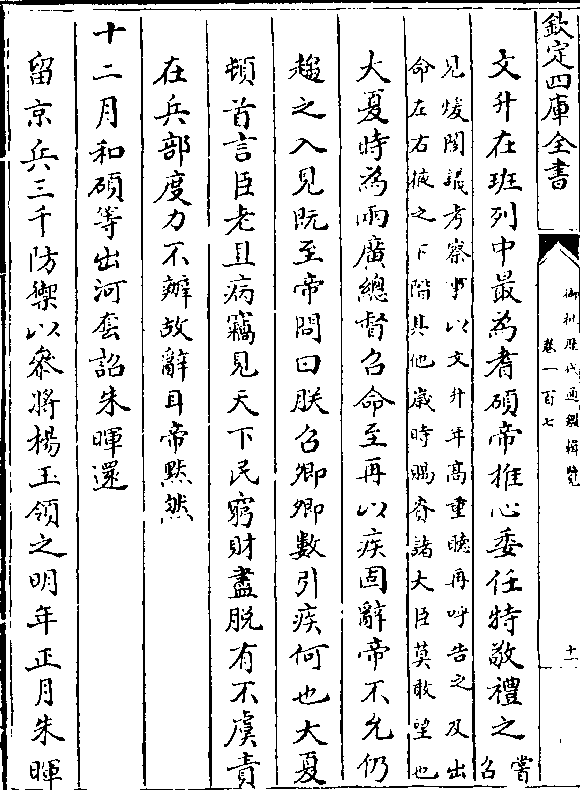 欽定四庫全書
御批歷代通鑑輯覽
卷一百七
十一
文升在班列中最為耆碩帝推心委任特敬禮之嘗召
見煖閣議考察事以文升年高重聽再呼告之及出
命左右掖之下階其他歲時賜賚諸大臣莫敢望也
大夏時為兩廣總督召命至再以疾固辭帝不允仍
趨之入見既至帝問曰朕召卿卿數引疾何也大夏
頓首言臣老且病竊見天下民窮財盡脱有不虞責
在兵部度力不辦故辭耳帝黙然
十二月和碩等出河套詔朱暉還
留京兵三千防禦以叅將楊玉領之明年正月朱暉